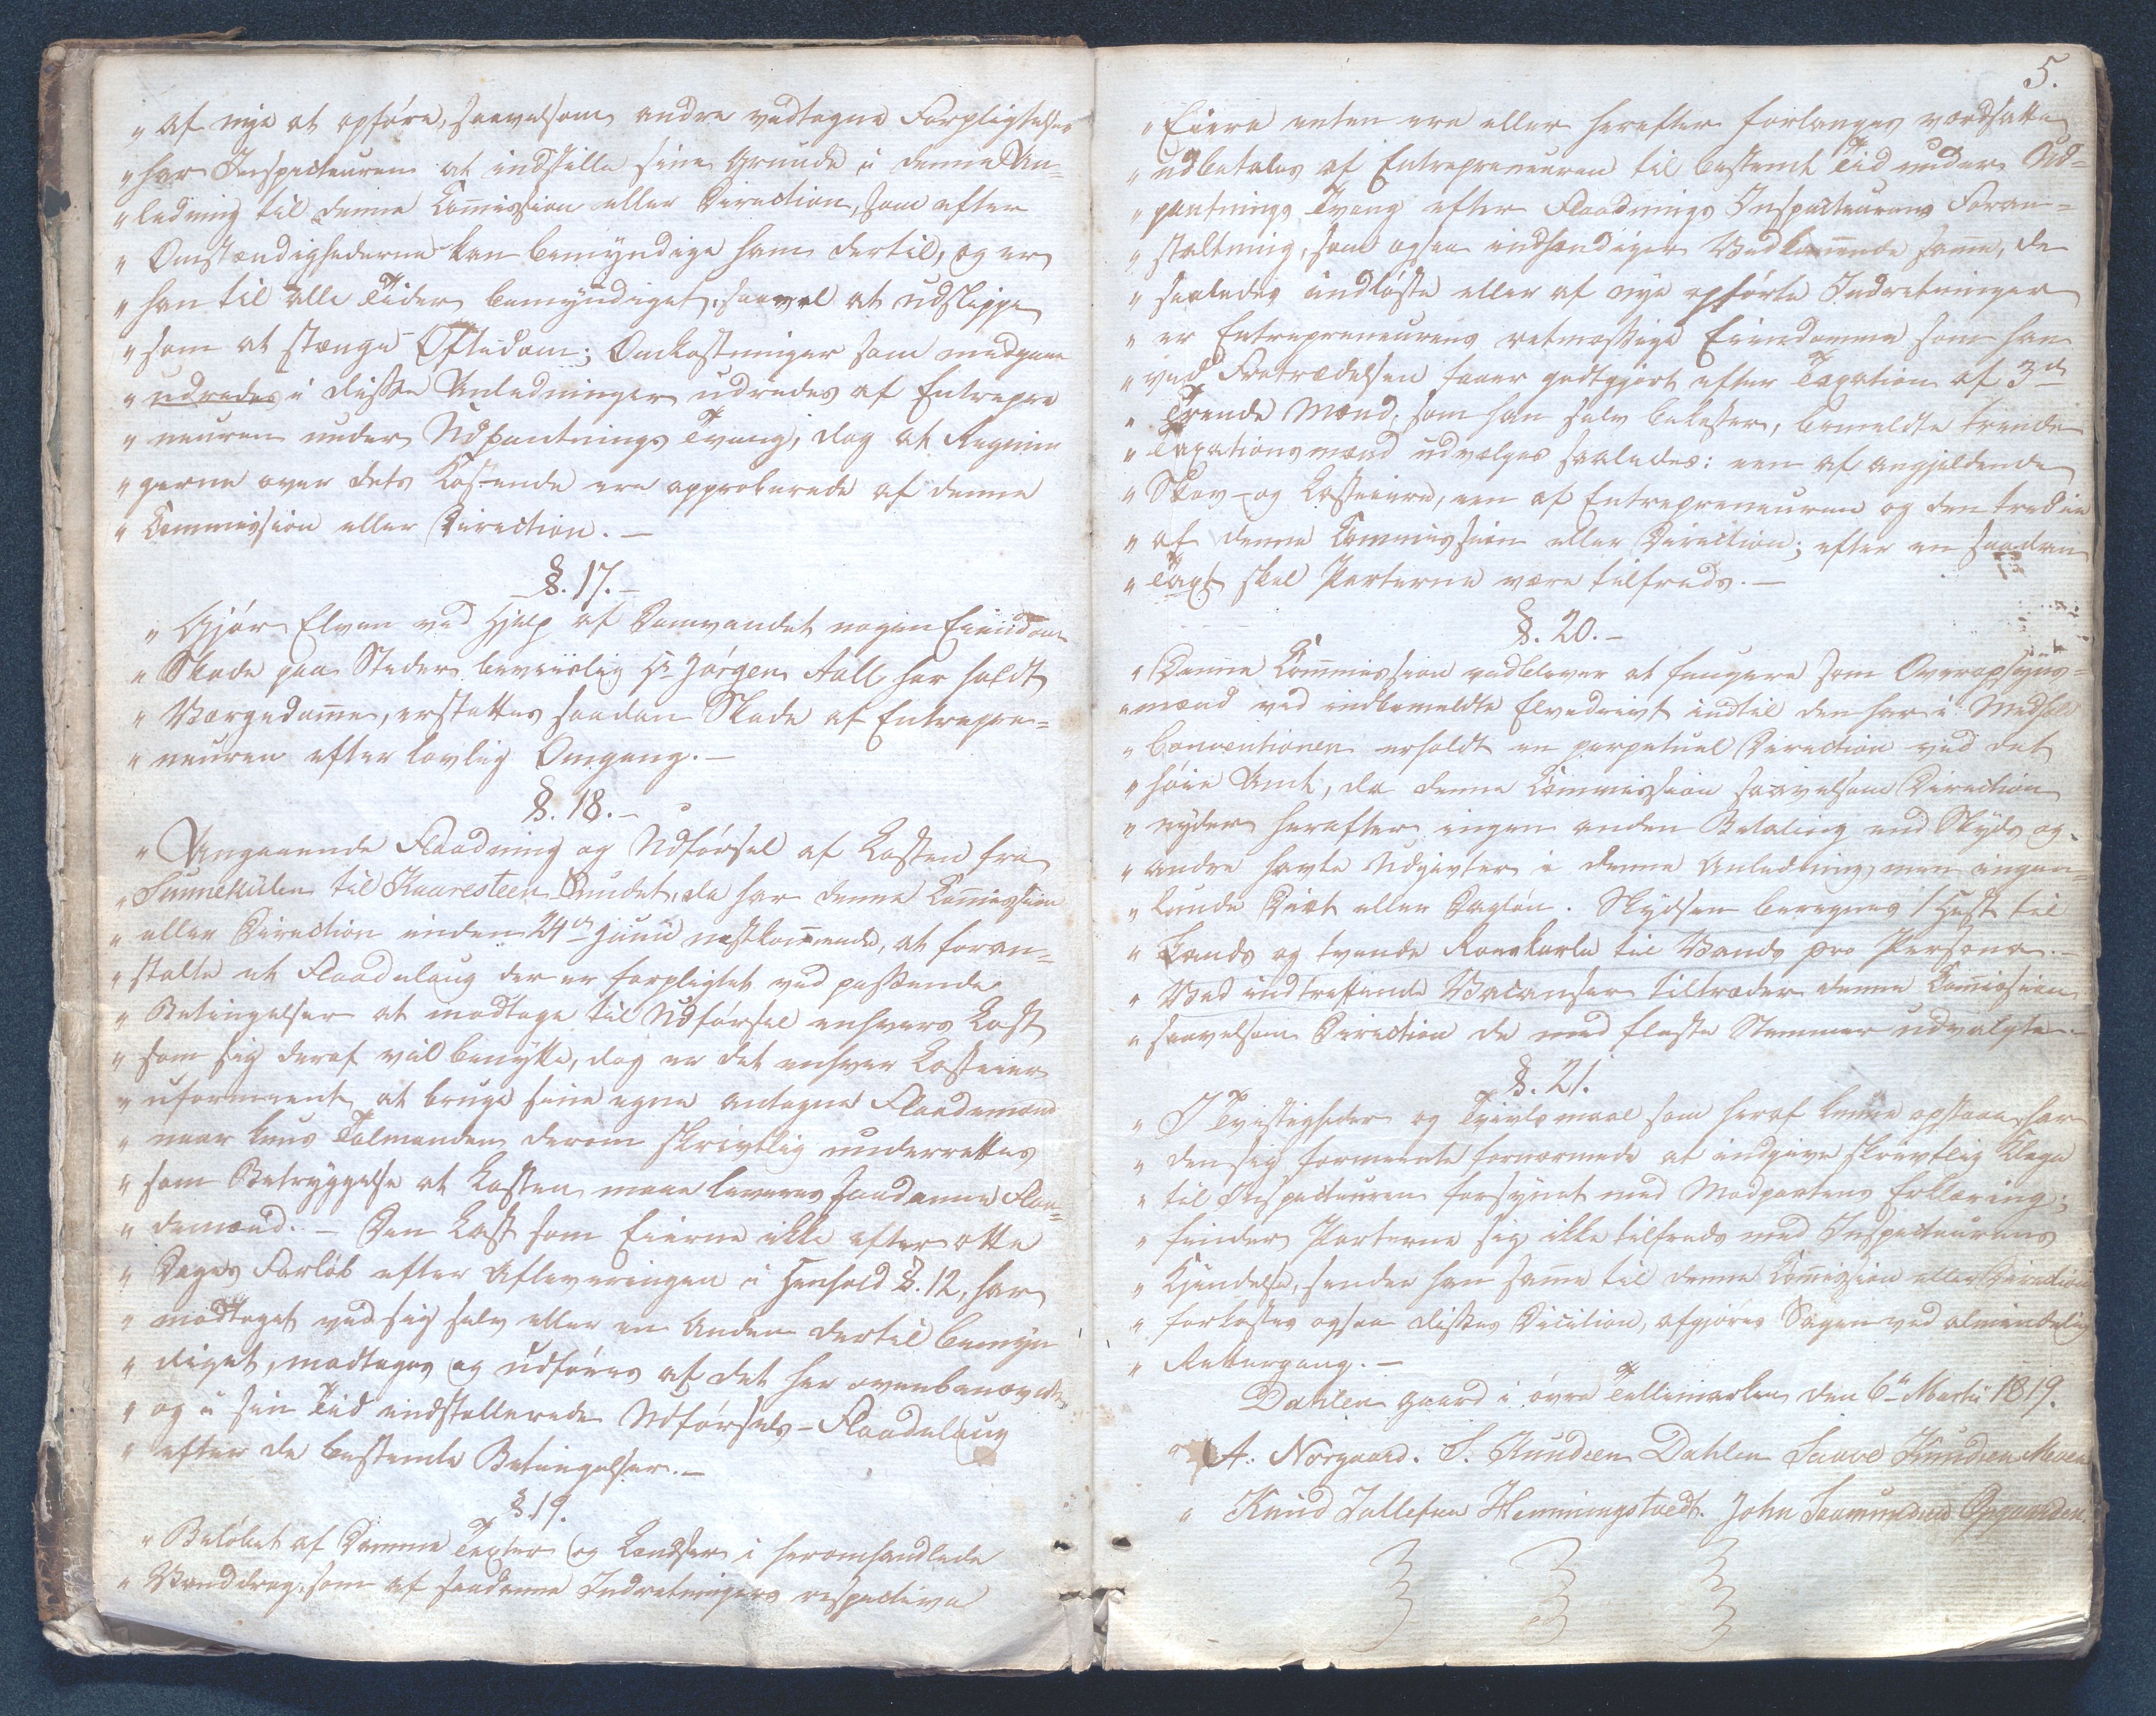 " af nye at opføre, saavelsom andre vedtagne Forpligtelser
" har Inspecteuren at indstille sine Grunde i denne An=
" ledning til denne Com̄ission eller Direction, som efter
" Omstændighederne kan bemyndige ham dertil, og er
" han til alle Tider bemyndiget, saavel at udslippe
" som at stænge Oftedam; Omkostninger som medgaae
" udredes i disse Anledninger udredes af Entrepre
" neuren under Udpantnings Tvang, dog at Regnin
" gerne over dets Kostende ere approberede af denne
" Commission eller Direction. –
§. 17. –
" Gjør Elven ved Hjelp af Damvandet nogen Eiendom
" Skade paa Steder beviislig Hr Jørgen Aall har holdt
" Værgedam̄e, erstattes saadan Skade af Entrepre=
" neuren efter lovlig Omgang. –
§. 18. –
" Angaaende Flaadning og Udførsel af Lasten fra
" Sunnekilen til Kaaresteen Sundet, da har denne Com̄ission
" eller Direction inden 24de Junii nestkom̄ende, at foran=
" stalte et Flaadelaug der er forpligtet ved passende
" Betingelser at modtage til Udførsel enhvers Last
" som sig deraf vil benytte, dog er det enhver Lasteier
" uformeent at bruge sine egne antagne Flaademænd
" naar kuns Talmanden derom skrivtlig underrettes
" som Betryggelse at Lasten maae leveres saadanne Flaa=
" demænd. – Den Last som Eierne ikke efter otte
" Dages Forløb efter Afleveringen i Henhold §. 12, har
" modtaget ved sig selv eller en Anden dertil bemyn
" diget, modtages og udføres af det her ovenbenævnte
" og i sin Tid indstallerede Udførsels-Flaadelaug
" efter de bestemte Betingelser. –
§ 19.
" Beløbet af Damme Texter og Landser i heromhandlede
" Vanddrag, som af saadanne Indretningers respective
5.
" Eiere enten ere eller herefter forlanges værdsatte
" udbetales af Entrepreneuren til bestemt Tid under Ud=
" pantnings Tvang efter Flaadnings Inspecteurens Foran=
" staltning, som ogsaa indhændiger Vedkom̄ende sam̄e, de
" saaledes indløste eller af nye opførte Indretninger
" er Entrepreneurens retmæssige Eiendomme som han
" ved Fratrædelsen faaer godtgjort efter Taxation af 3de
" Trende Mænd, som han selv bekoster, bemeldte trende
" Taxationsmænd udvælges saaledes: een af angjeldende
" Skov- og Lasteiere, een af Entrepreneuren og den tredie
" af denne Commission eller Direction; efter en saadan
" Taxt skal Parterne være tilfreds. –
§. 20. –
" Denne Com̄ission vedbliver at fungere som Overopsyns=
" mænd ved indbemeldte Elvedrivt indtil den har i Medhold
" Conventionen erholdt en perpetuel Direction ved det
" høie Amt, da denne Commission saavelsom Direction
" nyder herefter ingen anden Betaling end Skyds og
" andre havte Udgivter i denne Anledning, men ingen=
" lunde Diæt eller Dagløn. Skydsen beregnes 1 Hest til
" Lands og tvende Roerskarle til Vands pro Persona. –
" Ved indtreffende Vacanser tiltræder denne Com̄ission
" saavelsom Direction de med fleste Stemmer udvalgte. –
§. 21.
" I Tvistigheder og Tvivlsmaal som heraf kunne opstaae, har
" den sig formeente fornærmede at indgive skrivtlig Klage
" til Inspecteuren forsynet med Modpartens Erklæring;
" finder Parterne sig ikke tilfreds med Inspecteurens
" Kjendelse, sender han sam̄e til denne Com̄ission eller Direction
" forkastes ogsaa disses Dicition, afgjøres Sagen ved almindelig
" Rettergang. –
Dahlen gaard i øvre Tellemarken den 6te Martii 1819.
" A. Norgaard. S. Knudsen Dahlen Saave Knudsen Moen
" Knud Tallefsen Hemmingstvedt. John Saamundsen Oppanden.